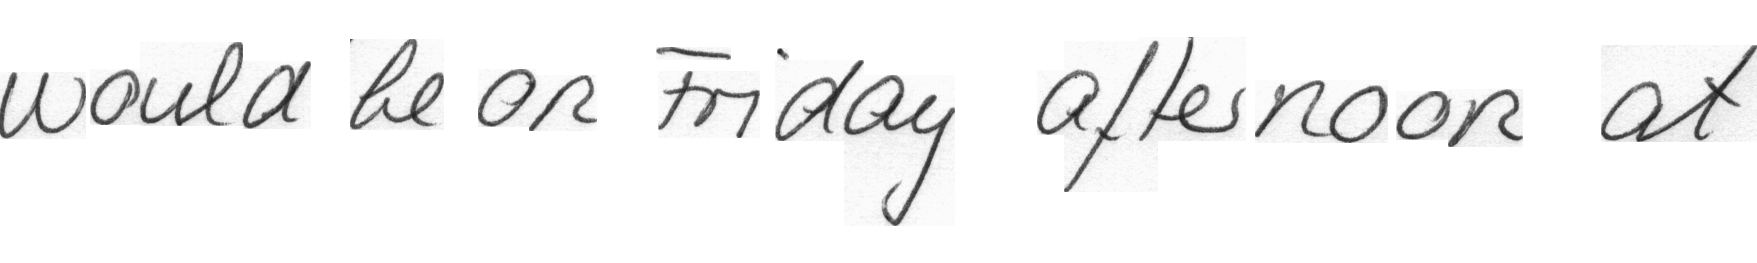 would be on Friday afternoon at